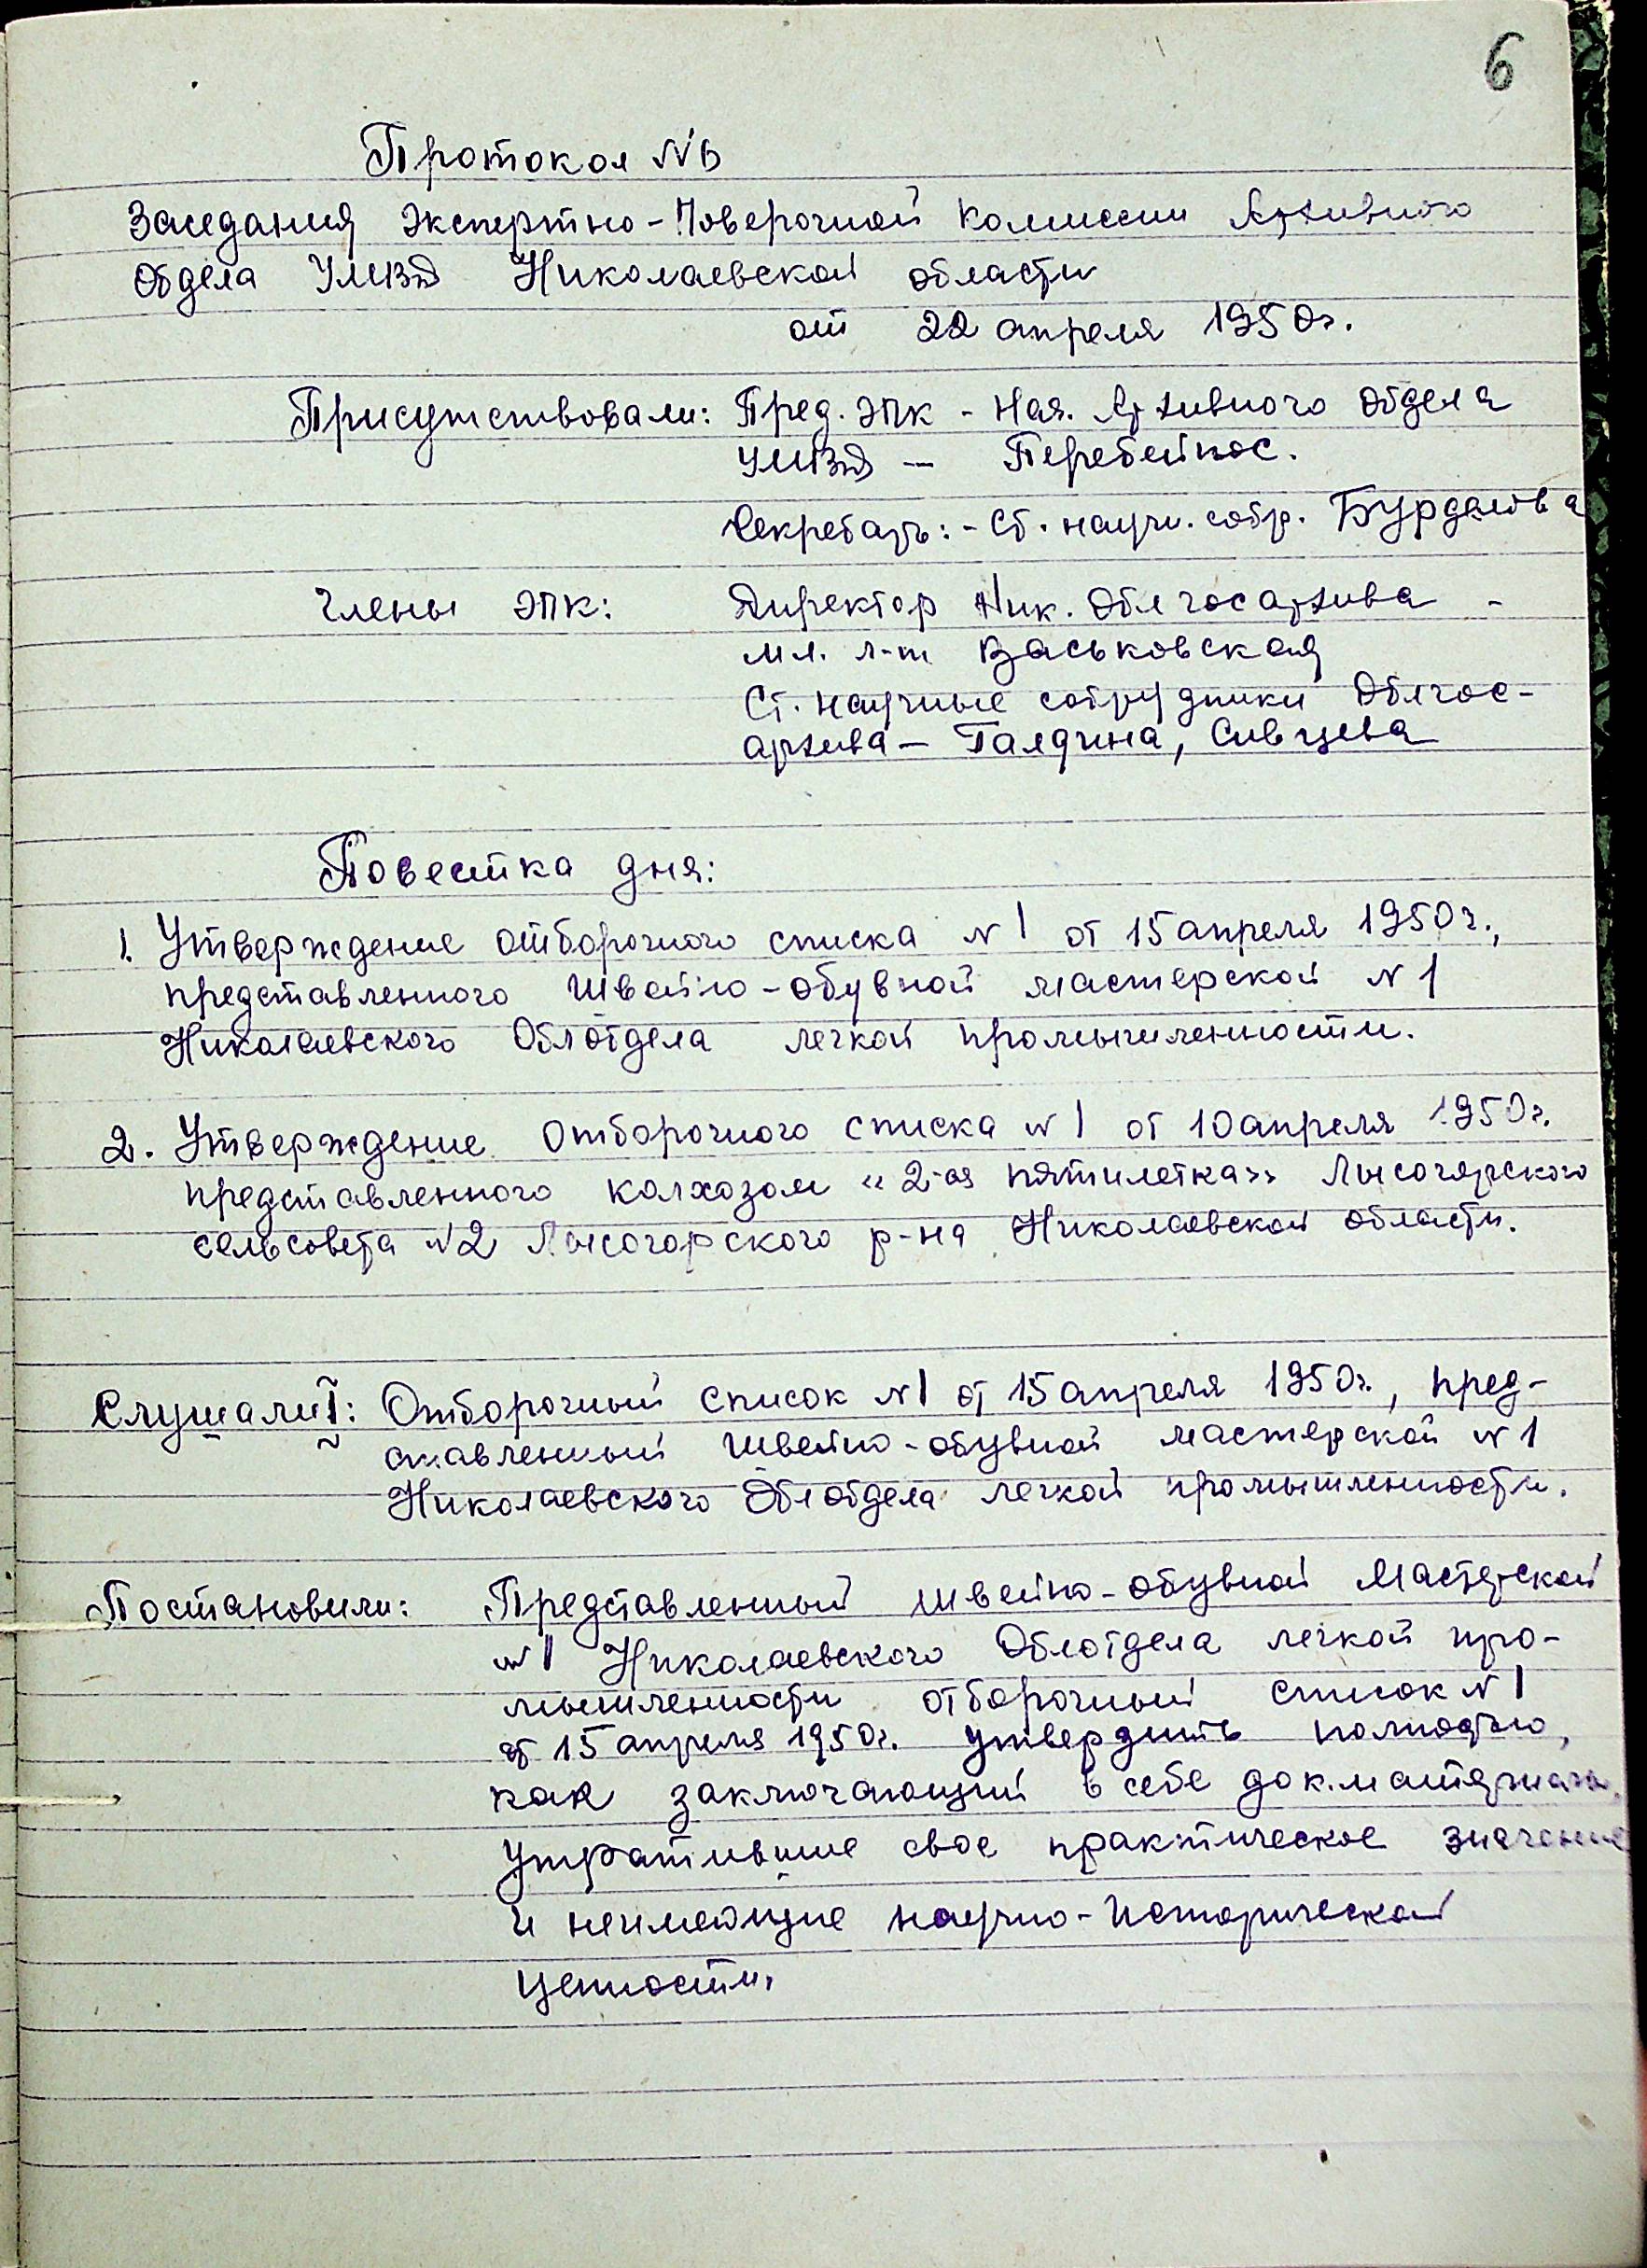 6
Протокол №6
Заседания Экспертно-Поверочной Комиссии Архивного
Отдела УМВД Николаевской области
от 22 апреля 1950г.
Присутствовали: Пред. ЭПК - Нач. Архивного Отдела
УМВД — Перебейнос.
Секретарь: - Ст. научн. сотр. Бурдалова
Члены ЭПК: Директор Ник. Облгосархива -
мл. л-т Васьковская
Ст. научные сотрудники Облгос-
архива — Галядина, Сивцева
Повестка дня:
1. Утверждение отборочного списка №1 от 15 апреля 1950г.,
представленного Швейно-обувной мастерской №1
Николаевского Облотдела легкой промышленности.
2. Утверждение отборочного списка №1 от 10 апреля 1950г.
представленного колхозом «2-ая пятилетка» Лысогорского
сельсовета №2 Лысогорского р-на Николаевской области.
Слушали I: Отборочный список №1 от 15 апреля 1950г., пред-
ставленный Швейно-обувной мастерской №1
Николаевского Облотдела легкой промышленности.
Постановили: Представленный швейно-обувной Мастерской
№1 Николаевского Облотдела легкой про-
мышленности отборочный список №1
от 15 апреля 1950г. утвердить полностью,
как заключающий в себе док.материалы,
утратившие свое практическое значение
и неимеющие научно-исторической
ценности.